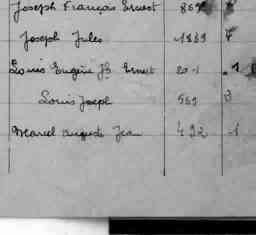 Joseph François Ernest 869
Joseph Jules 1889 7
Louis Eugène JB Ernest 20-1 1
Louis Joseph 569 3
Marcel Auguste Jean 492 1